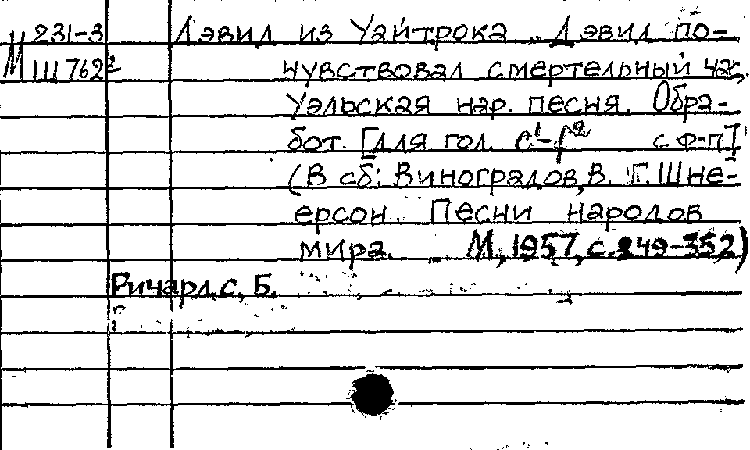 231-3 Дэвид из Уайтрока „Дэвид по-
М Ш 762² чувствовал смертельный час,
Уэльская нар. песня. Обра-
бот. [для гол. c¹-f² с ф-п]
(В сб: Виноградов, В. Г. Шне-
ерсон. Песни народов
мира. М, 1957, с. 349-352)
Ричардс, Б.